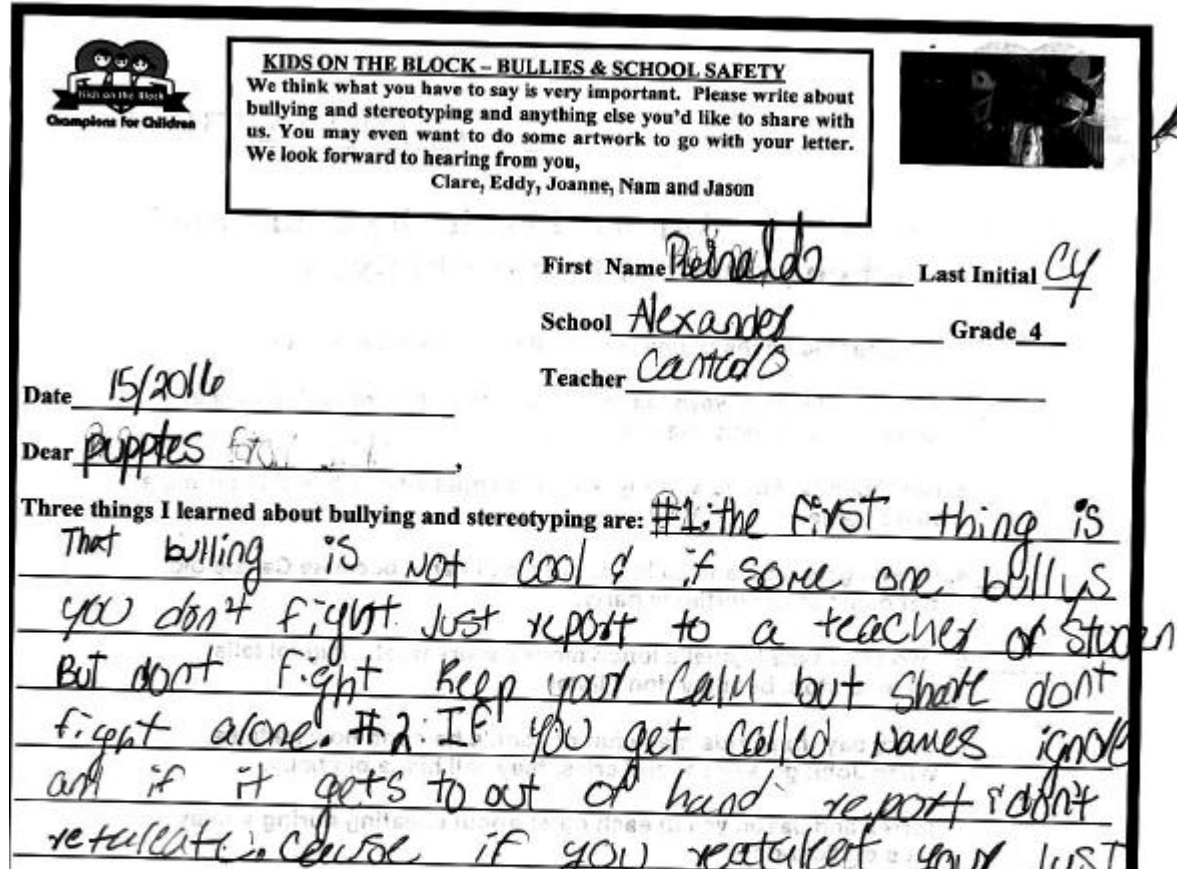 Kids on the Block
Champions for Children
KIDS ON THE BLOCK – BULLIES & SCHOOL SAFETY
We think what you have to say is very important. Please write about
bullying and stereotyping and anything else you'd like to share with
us. You may even want to do some artwork to go with your letter.
We look forward to hearing from you,
Clare, Eddy, Joanne, Nam and Jason
First Name Reinaldo Last Initial CY
School Alexander Grade 4
Teacher
Date 15/2016
Dear pupptes ,
Three things I learned about bullying and stereotyping are: #1: the first thing is
That bulling is not cool & if some one bullys
you don't fight just report to a teacher or Studen
But dont fight keep your calm but share dont
fight alone. #2: If you get called names ignore
and if it gets to out of hand report & don't
if you your just